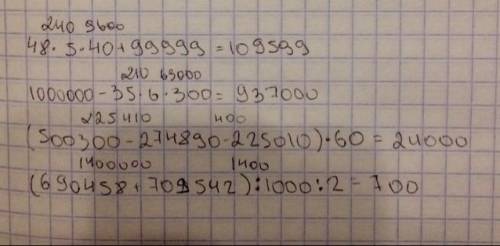 240 9600
48·5·40+99999=109599
210 63000
1000000-35·6·300=937000
225410 400
(500300-274890-225010)·60=24000
1400000 1400
(690458+709542):1000:2=700